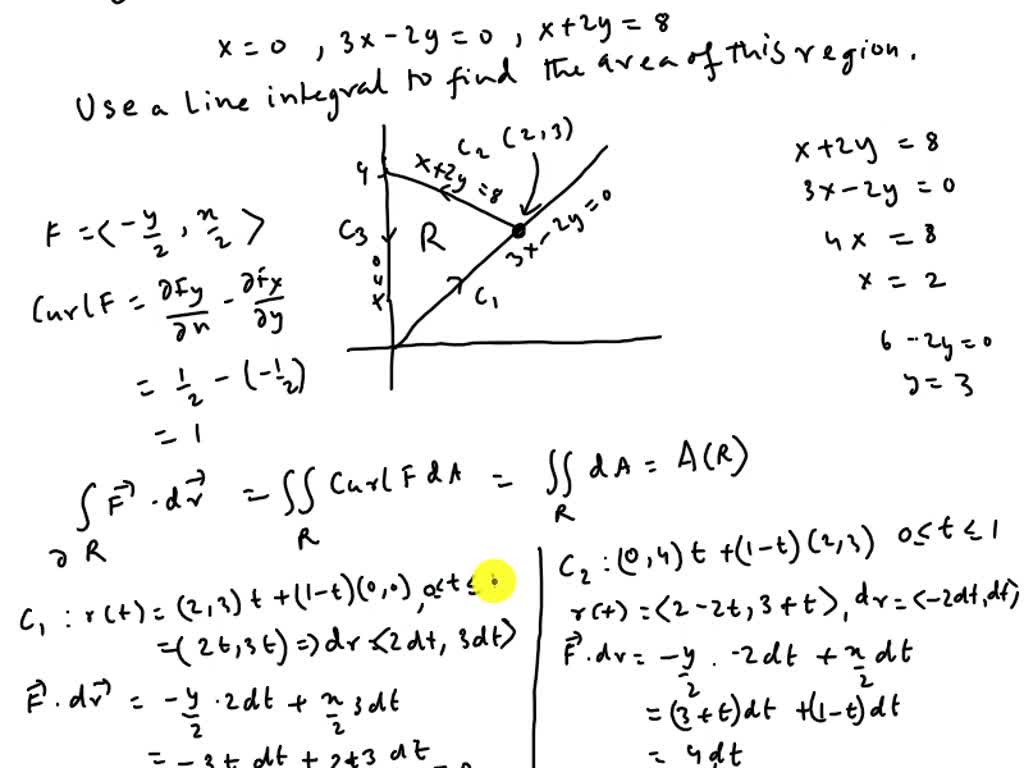 x = 0 , 3x - 2y = 0 , x + 2y = 8
Use a Line integral to find the area of this region.
4
C2 (2,3)
x+2y=8
C3
R
x=0
3x-2y=0
C1
x+2y = 8
3x-2y = 0
4x = 8
x = 2
6 - 2y = 0
y = 3
F = <-y/2, x/2>
Curl F = ∂Fy/∂x - ∂Fx/∂y
= 1/2 - (-1/2)
= 1
∫∂R F⃗ · dr⃗ = ∬R Curl F dA = ∬R dA = A(R)
C1 : r(t) = (2,3)t + (1-t)(0,0), 0≤t≤
= (2t, 3t) => dr <2dt, 3dt>
F⃗ · dr⃗ = -y/2 · 2dt + x/2 3dt
C2 : (0,4)t + (1-t)(2,3) 0≤t≤1
r(t) = <2-2t, 3+t>, dr = <-2dt, dt>
F⃗ · dr = -y/2 · -2dt + x/2 dt
= (3+t)dt + (1-t)dt
= 4dt